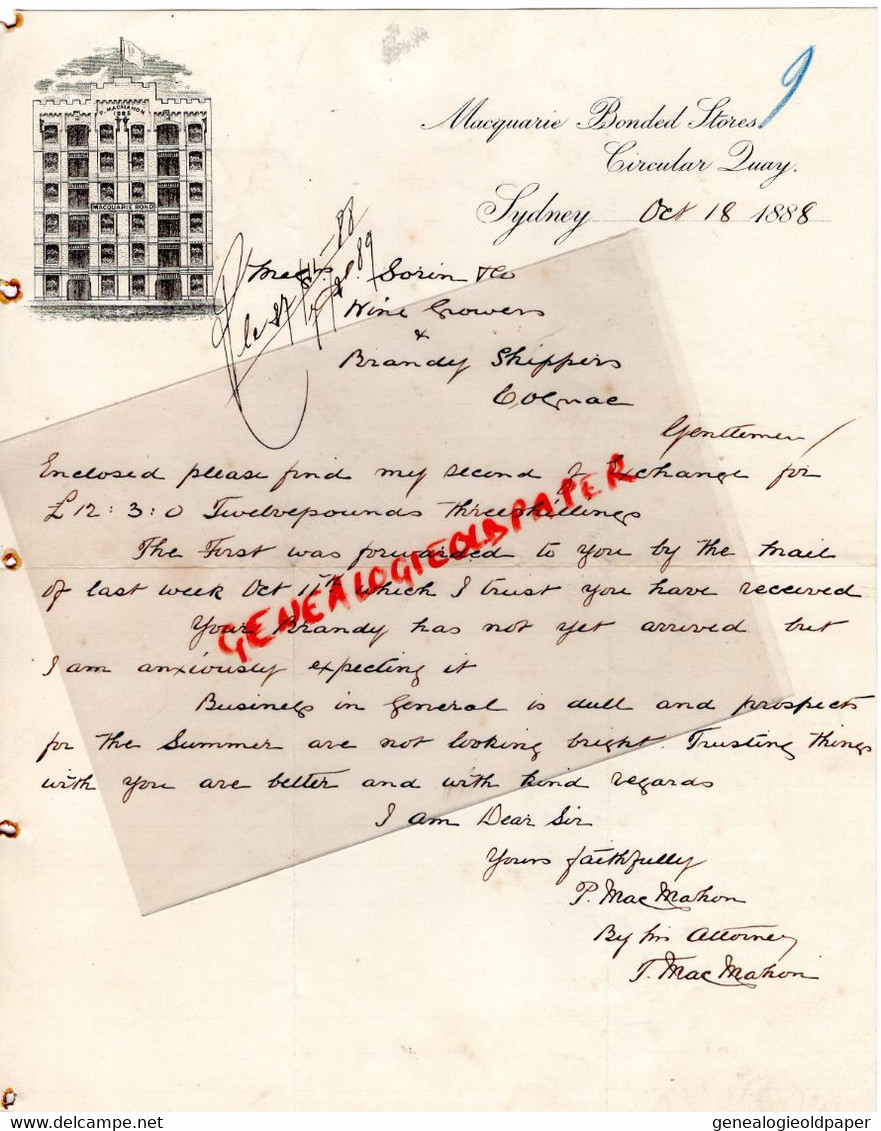 P. MACMAHON
1885
MACQUARIE BOND
9
Macquarie Bonded Stores,
Circular Quay.
Sydney Oct 18 1888
Sorin & Co
Wine Growers
&
Brandy Shippers
Cognac
Gentlemen/
Enclosed please find my second of Exchange for
£12:3:0 Twelvepounds threeshillings
The First was forwarded to you by the mail
of last week Oct 11th which I trust you have received
Your Brandy has not yet arrived but
I am anxiously expecting it
Business in General is dull and prospects
for the Summer are not looking bright. Trusting things
with you are better and with kind regards
I am Dear Sir
Yours faithfully
P. MacMahon
By his Attorney
T. MacMahon
GENEALOGIEOLDPAPER
genealogieoldpaper